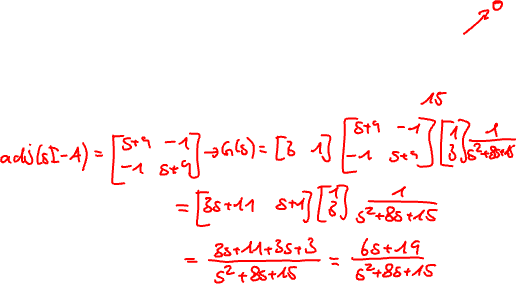 ↗0
15
adj(sI-A) = [s+4 -1; -1 s+4] → G(s) = [3 1] [s+4 -1; -1 s+4] [1; 3] 1/(s²+8s+15)
= [3s+11 s+1] [1; 3] 1/(s²+8s+15)
= (3s+11+3s+3)/(s²+8s+15) = (6s+14)/(s²+8s+15)